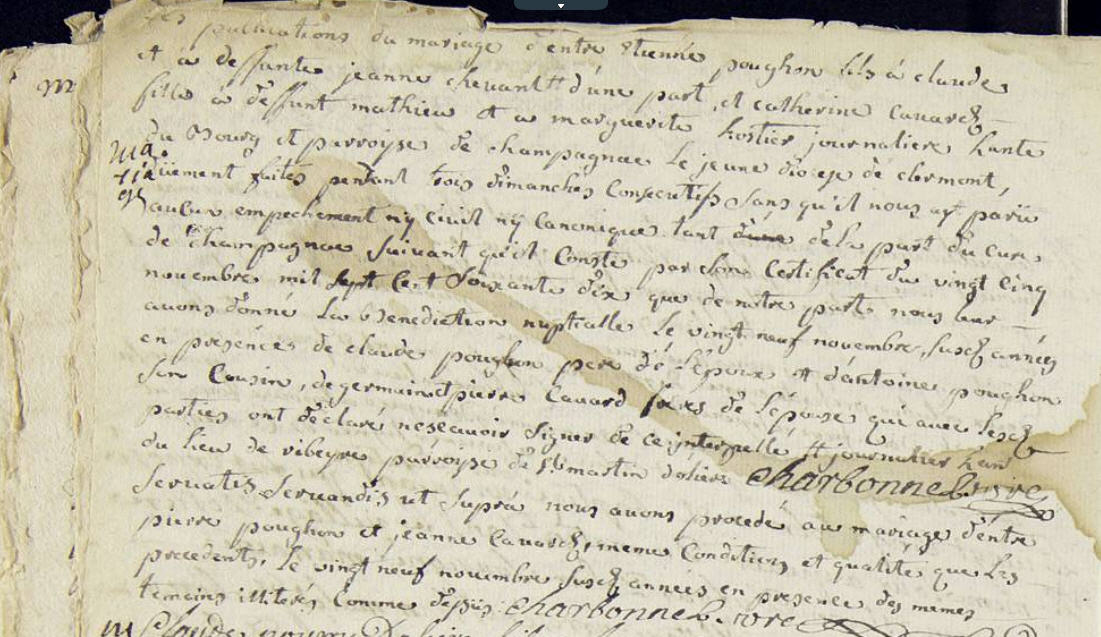 les publications du mariage d'entre Etienne poughon fils à claude
et à deffunte jeanne chevant # d'une part, et catherine Cavard
fille à deffunt mathieu et a marguerite hostier journaliere hante
du Bourg et parroysse de champagnac le jeune diocese de clermont,
faites pendant trois dimanches Consecutifs sans qu'il nous ay pariü
aucun empechement ny civil ny canonique tant de la part du curé
de champagnac suivant qu'il Conste par son Certificat du vingt cinq
novembre mil sept Cent Soixante dix que de notre part nous leur
avons donné La Benediction nuptialle Le vingt neuf novembre, susd années
en presence de claude poughon pere de L'epoux et d'antoine poughon
son Cousin, de germain et pierre Cavard freres de l'epouse qui avec lesd
parties ont déclaré ne scavoir signer de ce interpellé # journalier han
du lieu de ribeyre parroysse de St martin dolieres Charbonnel
Servatis Servandis ut supra nous avons procedé au mariage d'entre
pierre poughon et jeanne Cavard, meme Conditions et qualité que Les
precedents, Le vingt neuf novembre susd années en presence des memes
temoins illiterés Comme dessus: Charbonnel
Claude